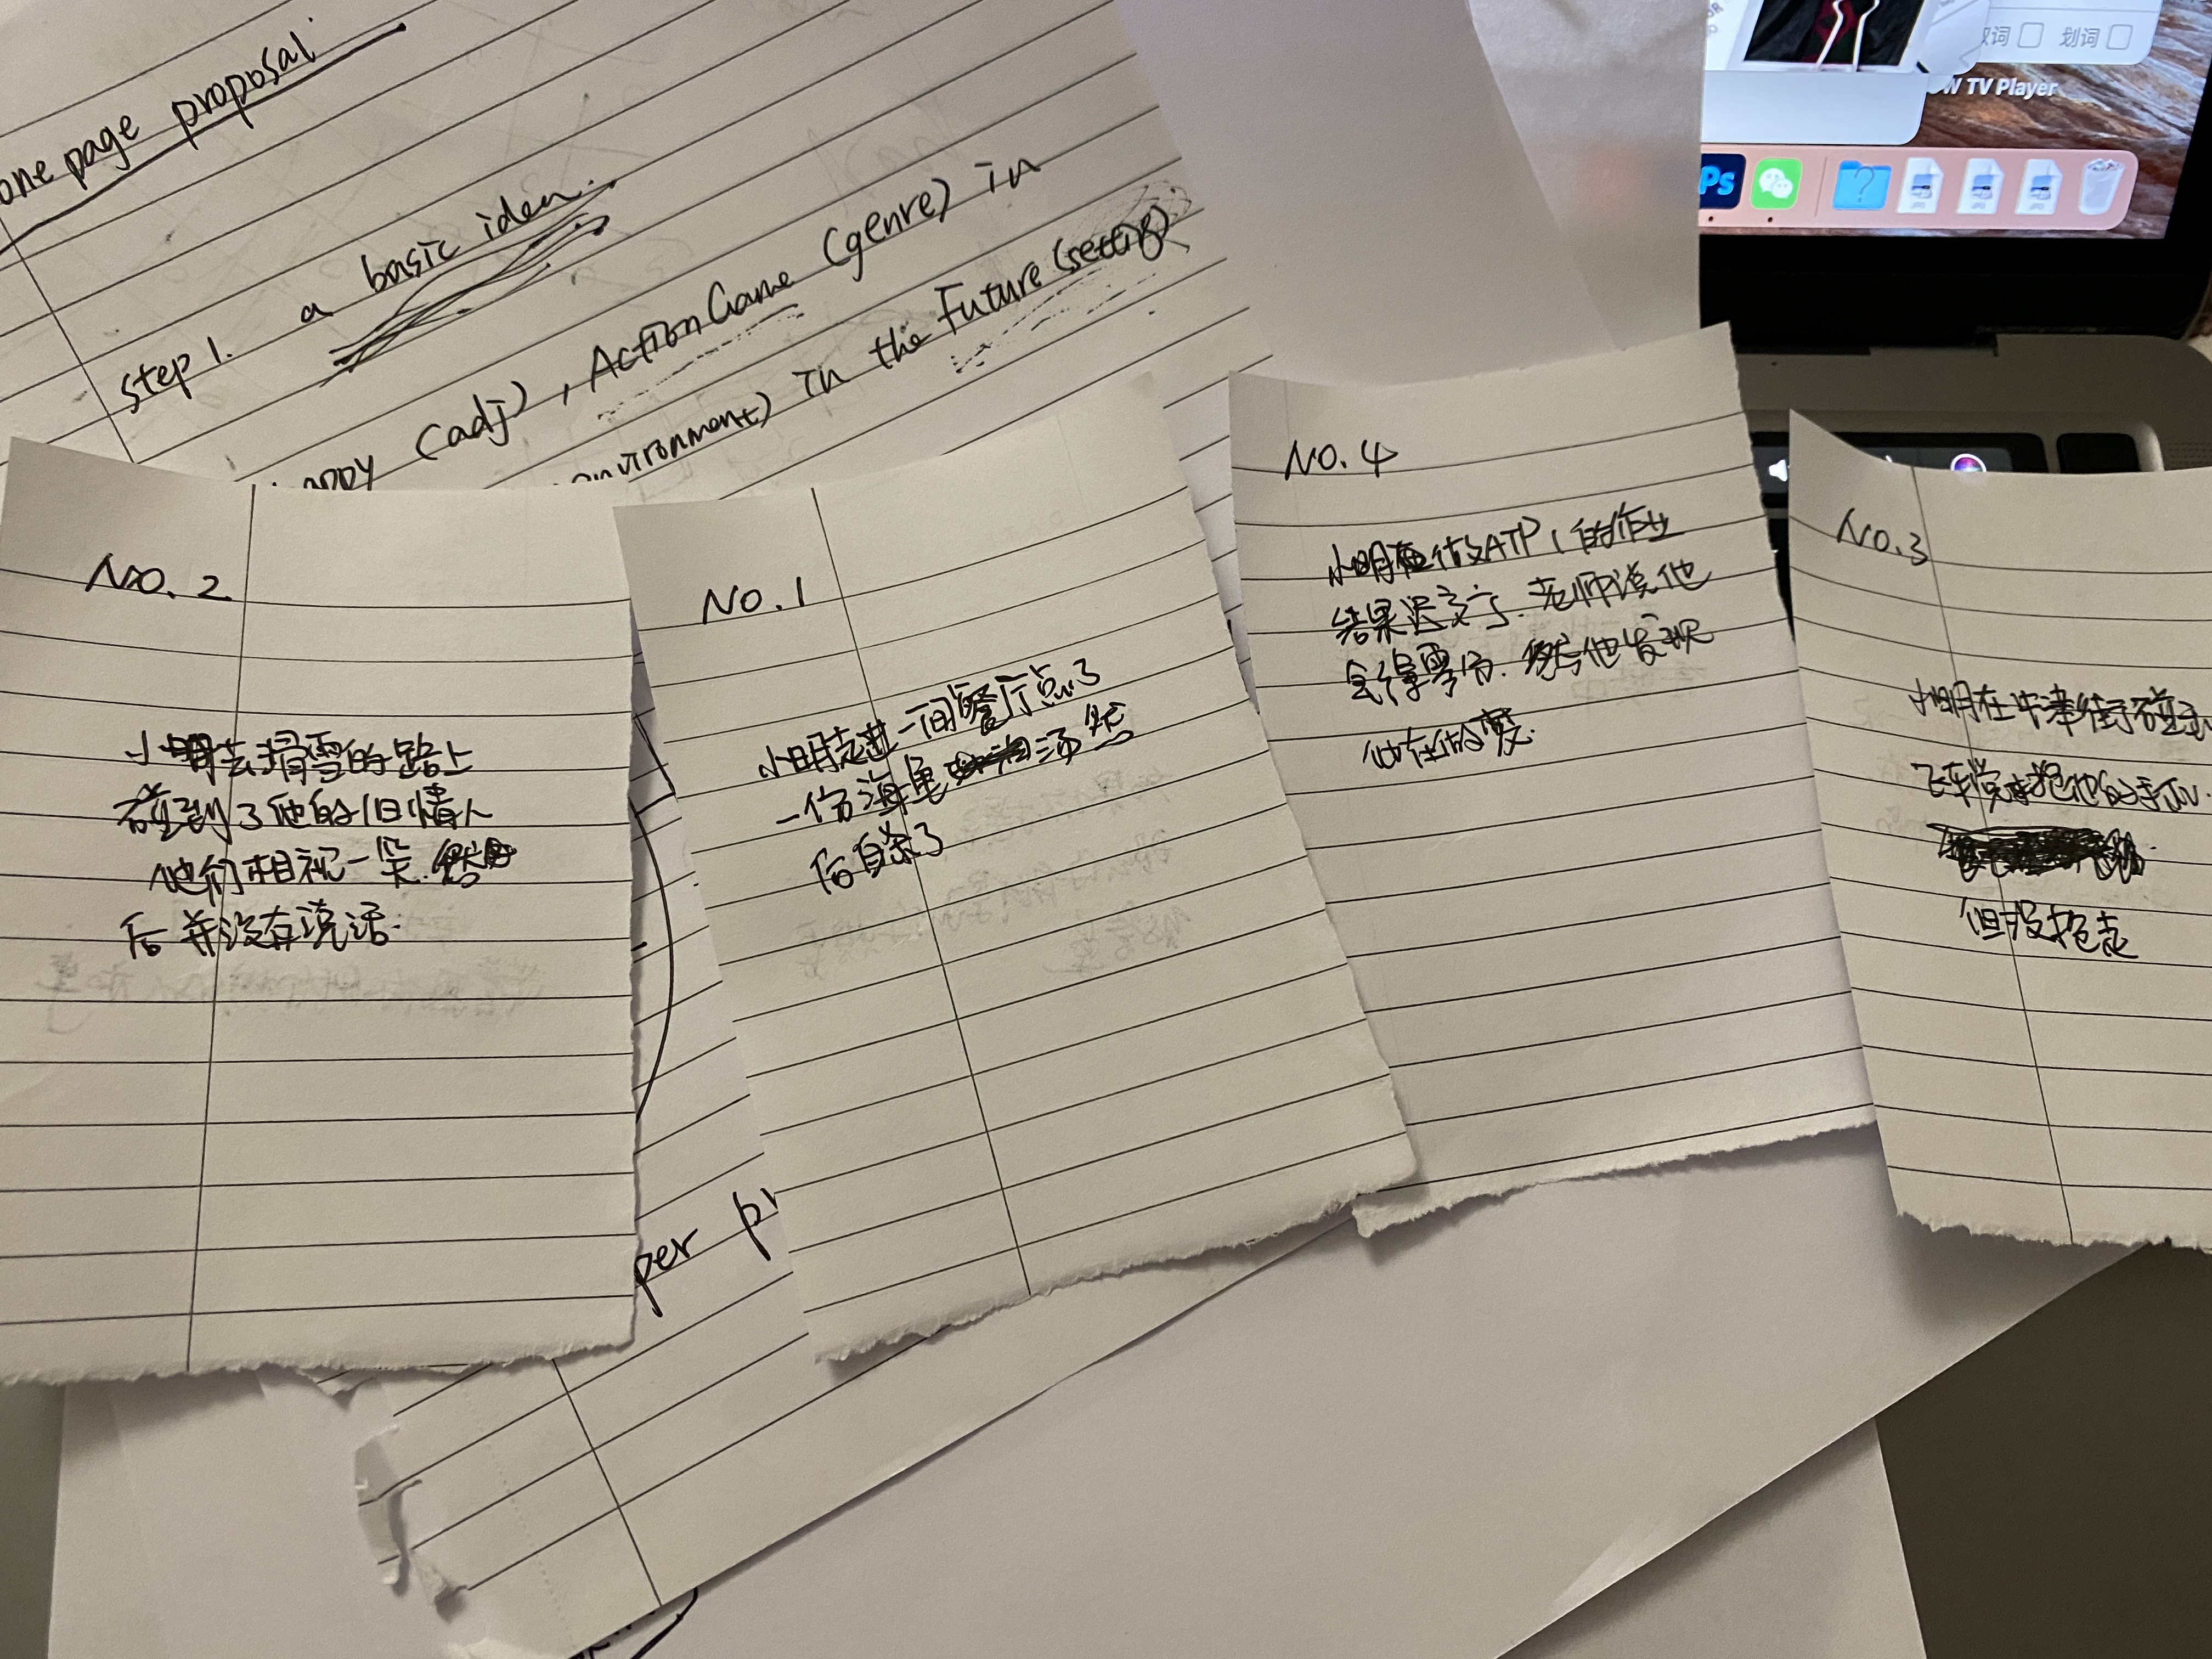 one page proposal
step 1. a basic idea.
(adj), Action Game (genre) in
environment) in the Future (setting)
NO. 2
小明去滑雪的路上
碰到了他的旧情人
他们相视一笑.然
后并没有说话.
NO. 1
小明走进一间餐厅点了
一份海龟汤然
后自杀了
NO. 4
小明在做ATP1的作业
结果迟交了.老师说他
会得零分.然后他发现
他在做梦.
NO. 3
小明在牛津街碰到
飞车党来抢他的手机.
但没抢走
per
划词
TV Player
Ps